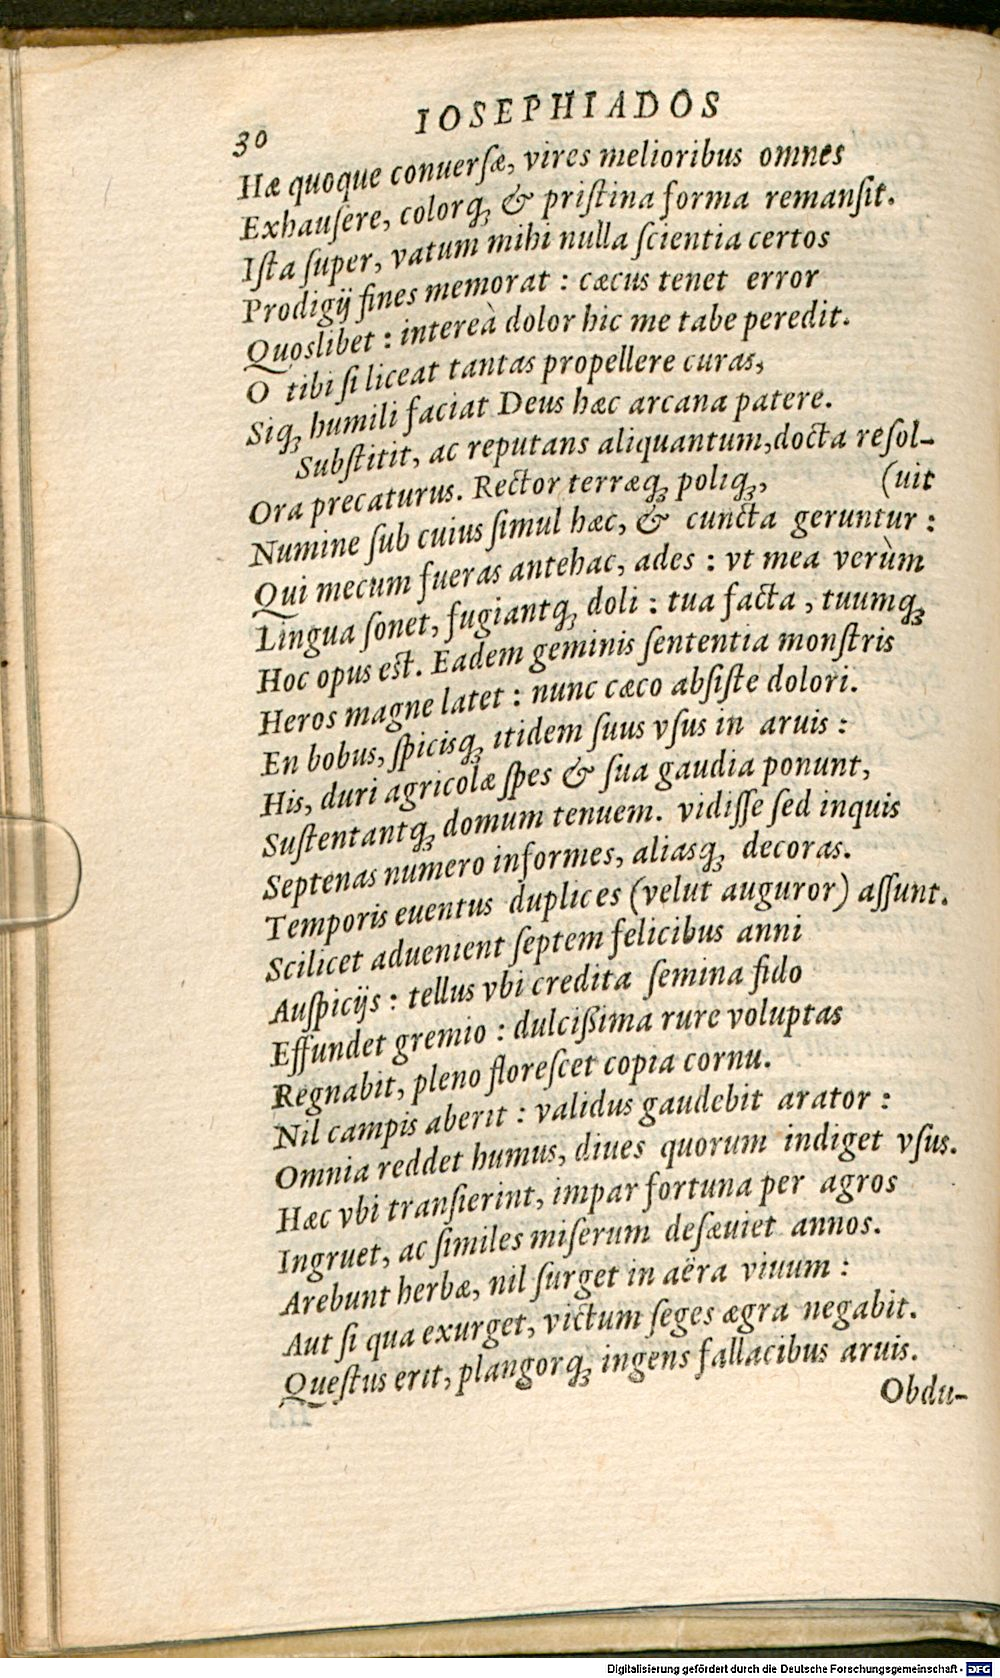 30
IOSEPHIADOS
Hæ quoque conuerſæ, vires melioribus omnes
Exhauſere, colorq́ꝫ & priſtina forma remanſit.
Iſta ſuper, vatum mihi nulla ſcientia certos
Prodigij fines memorat : cæcus tenet error
Quoslibet : intereà dolor hic me tabe peredit.
O tibi ſi liceat tantas propellere curas,
Siqꝫ humili faciat Deus hæc arcana patere.
Subſtitit, ac reputans aliquantum,docta reſol-
Ora precaturus. Rector terræqꝫ poliqꝫ, (uit
Numine ſub cuius ſimul hæc, & cuncta geruntur :
Qui mecum fueras antehac, ades : vt mea verùm
Lingua ſonet, fugiantqꝫ doli : tua facta , tuumqꝫ
Hoc opus eſt. Eadem geminis ſententia monſtris
Heros magne latet : nunc cæco abſiſte dolori.
En bobus, ſpicisqꝫ itidem ſuus vſus in aruis :
His, duri agricolæ ſpes & ſua gaudia ponunt,
Suſtentantqꝫ domum tenuem. vidiſſe ſed inquis
Septenas numero informes, aliasqꝫ decoras.
Temporis euentus duplices (velut auguror) aſſunt.
Scilicet aduenient ſeptem felicibus anni
Auſpicijs : tellus vbi credita ſemina fido
Effundet gremio : dulcißima rure voluptas
Regnabit, pleno floreſcet copia cornu.
Nil campis aberit : validus gaudebit arator :
Omnia reddet humus, diues quorum indiget vſus.
Hæc vbi tranſierint, impar fortuna per agros
Ingruet, ac ſimiles miſerum deſæuiet annos.
Arebunt herbæ, nil ſurget in aëra viuum :
Aut ſi qua exurget, victum ſeges ægra negabit.
Queſtus erit, plangorqꝫ ingens fallacibus aruis.
Obdu-
Digitalisierung gefördert durch die Deutsche Forschungsgemeinschaft - DFG